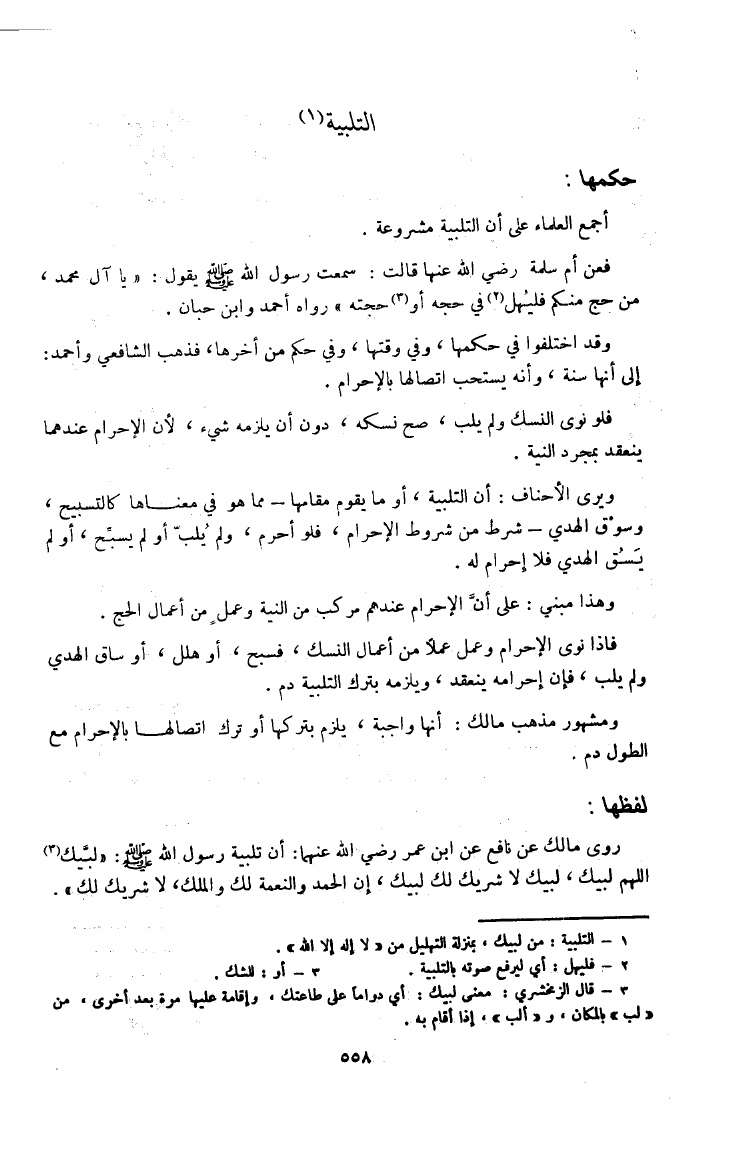 التلبية(١)
حكمها :
أجمع العلماء على أن التلبية مشروعة .
فعن أم سلمة رضي الله عنها قالت : سمعت رسول الله ﷺ يقول : « يا آل محمد ،
من حج منكم فليُهل(٢) في حجه أو(٣) حجته » رواه أحمد وابن حبان .
وقد اختلفوا في حكمها ، وفي وقتها ، وفي حكم من أخرها، فذهب الشافعي وأحمد:
إلى أنها سنة ، وأنه يستحب اتصالها بالإحرام .
فلو نوى النسك ولم يلب ، صح نسكه ، دون أن يلزمه شيء ، لأن الإحرام عندهما
ينعقد بمجرد النية .
ويرى الأحناف : أن التلبية ، أو ما يقوم مقامها – مما هو في معنـــاها كالتسبيح ،
وسوْق الهدي – شرط من شروط الإحرام ، فلو أحرم ، ولم يُلبّ أو لم يسبِّح ، أو لم
يَسُق الهدي فلا إحرام له .
وهذا مبني : على أنَّ الإحرام عندهم مركب من النية وعملٍ من أعمال الحج .
فاذا نوى الإحرام وعمل عملاً من أعمال النسك ، فسبح ، أو هلل ، أو ساق الهدي
ولم يلب ، فإن إحرامه ينعقد ، ويلزمه بترك التلبية دم .
ومشهور مذهب مالك : أنها واجبة ، يلزم بتركها أو ترك اتصالهـــا بالإحرام مع
الطول دم .
لفظها :
روى مالك عن نافع عن ابن عمر رضي الله عنهما: أن تلبية رسول الله ﷺ: «لبَّيك(٣)
اللهم لبيك ، لبيك لا شريك لك لبيك ، إن الحمد والنعمة لك والملك، لا شريك لك» .
١ – التلبية : من لبيك ، بمنزلة التهليل من « لا إله إلا الله » .
٢ – فليهل : أي ليرفع صوته بالتلبية . ٣ – أو : للشك .
٣ – قال الزمخشري : معنى لبيك : أي دواماً على طاعتك ، وإقامة عليها مرة بعد أخرى ، من
« لب » بالمكان ، و « ألب » ، إذا أقام به .
٥٥٨